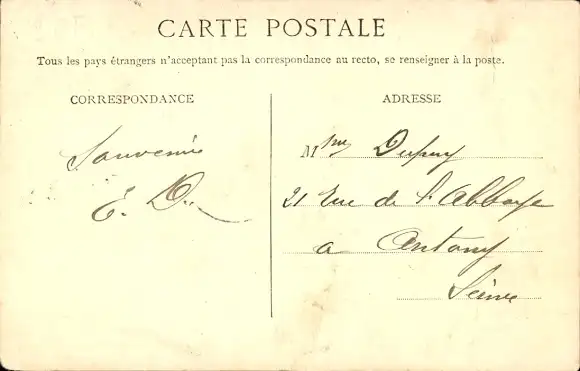 CARTE POSTALE
Tous les pays étrangers n'acceptant pas la correspondance au recto, se renseigner à la poste.
CORRESPONDANCE
Souvenir
E. D.
ADRESSE
Mme Dupuy
21 Rue de l'Abbaye
a Antony
Seine